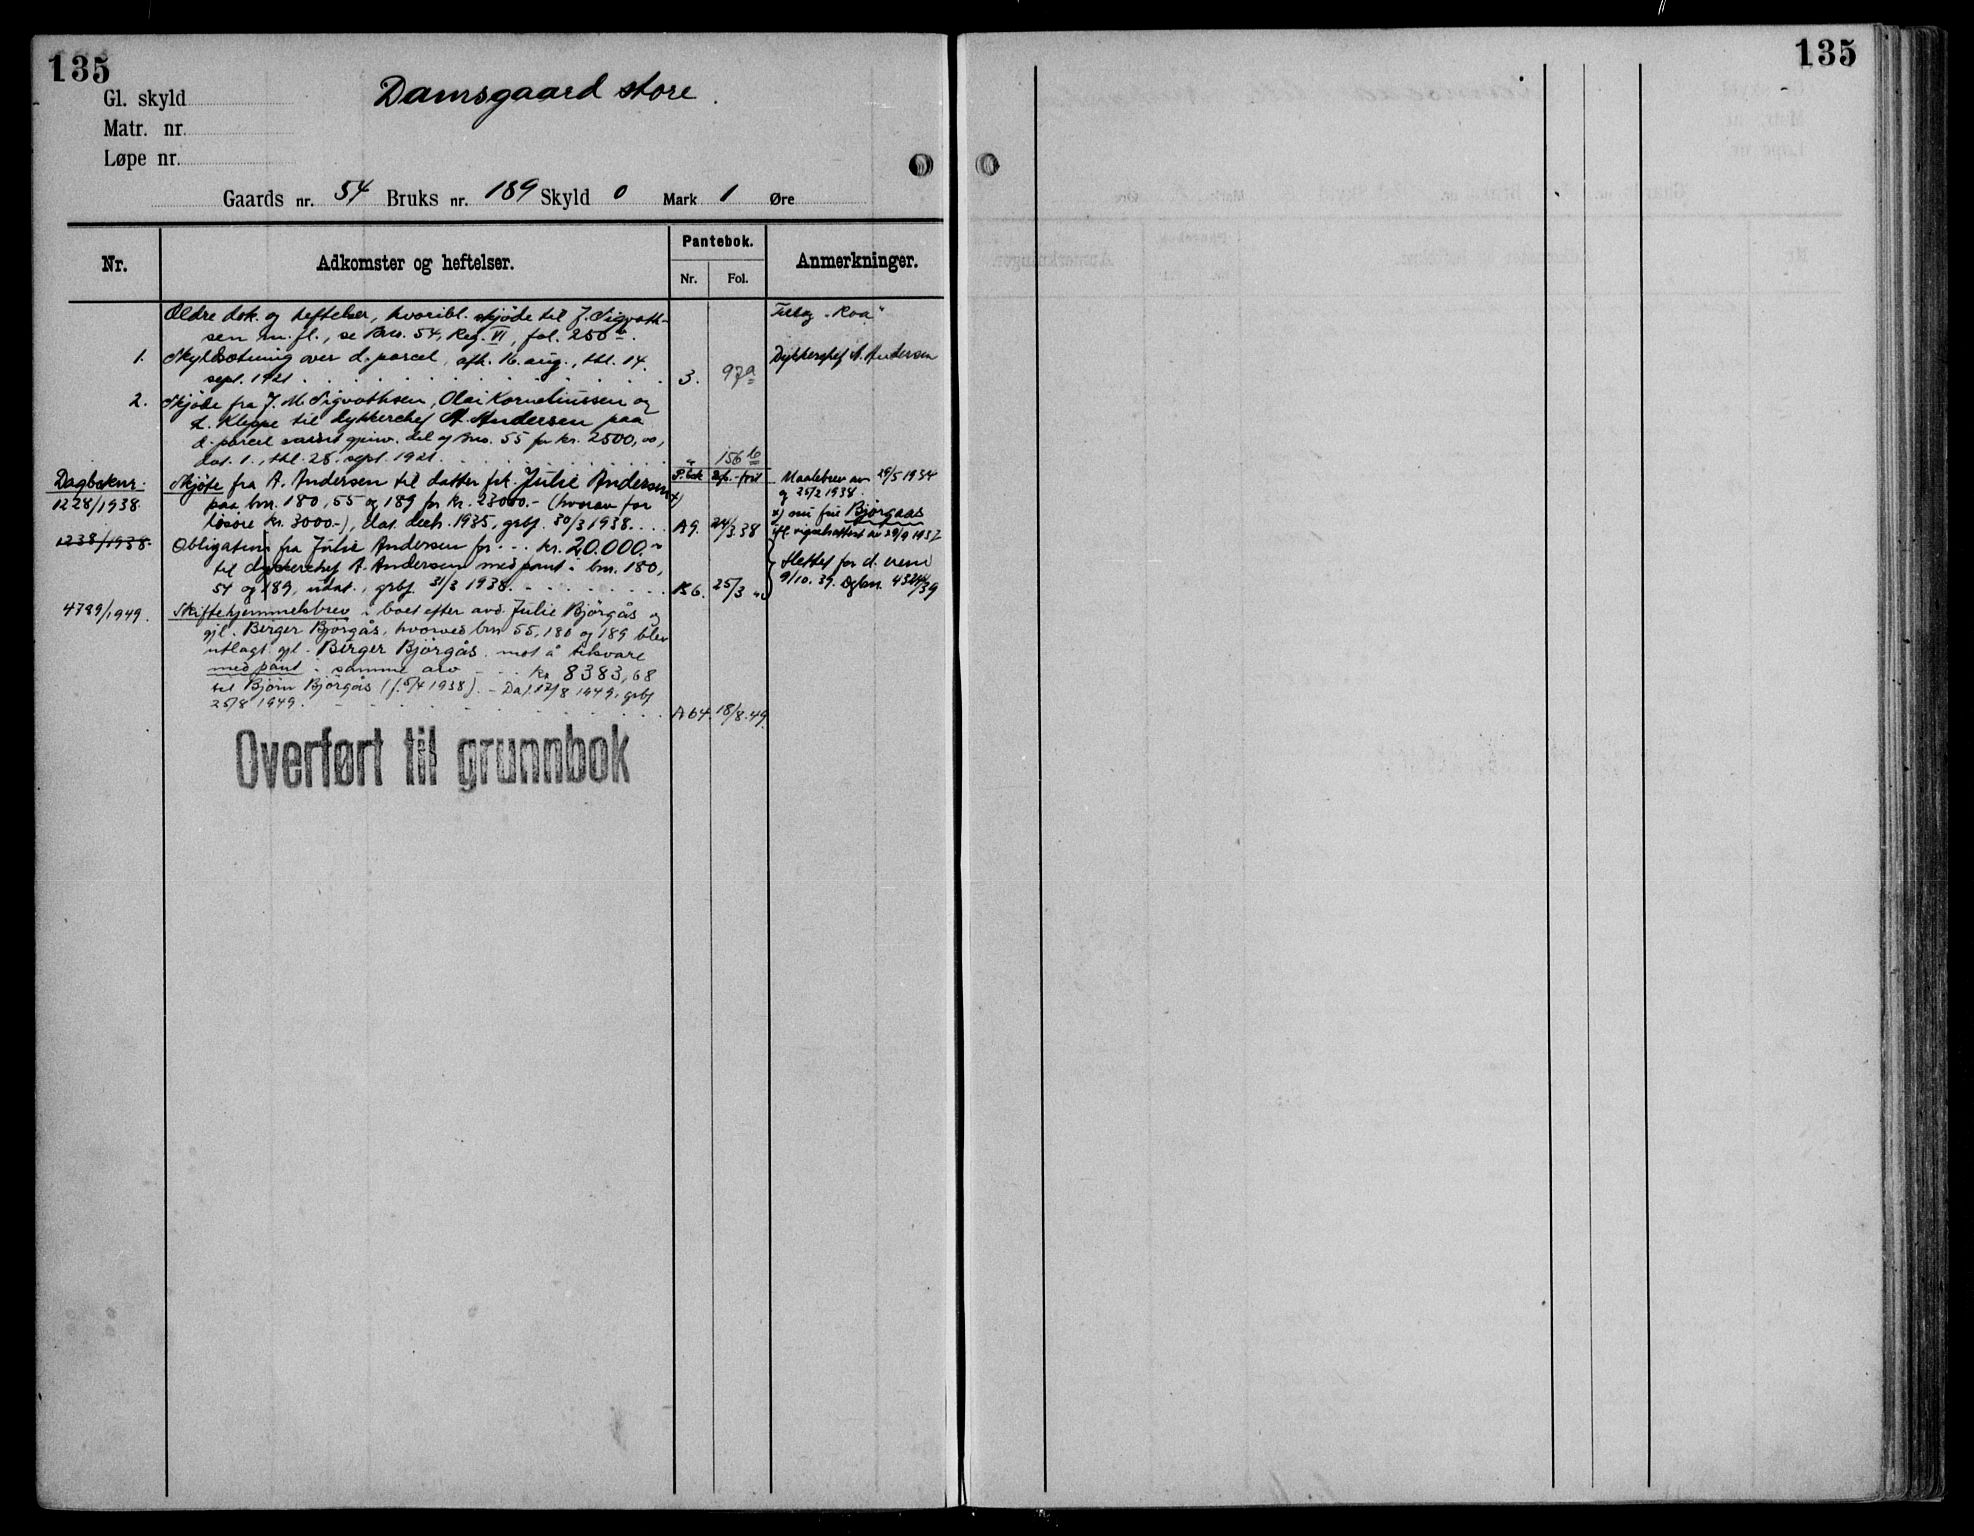 135
135
Damsgaard store.
Gl. skyld
Matr. nr.
Løpe nr.
Gaards nr. 54 Bruks nr. 189 Skyld 0 Mark 1 Øre
Nr. Adkomster og heftelser. Pantebok. Anmerkninger.
Nr. Fol.
Ældre dok. og heftelser, hvoribl. skjøde til J. Sigvath-
sen m. fl., se Bno. 54, Reg. VI, fol. 250
Tillæg „Roa"
1. Skyldsætning over d. parcel, afh. 16. aug., thl. 14.
sept. 1921 3. 97a
Dykkerchef A. Andersen
2. Skjøde fra J. M. Sigvathsen, Olai Korneliussen og
L. Kleppe til dykkerchef A. Andersen paa
d. parcel samt gjenv. del af Bno. 55 for kr. 2500,00,
dat. 1., thl. 28. sept. 1921 " 156b
Dagboknr. P.bok
1228/1938. Skjøte fra A. Andersen til datter frk. Julie Andersen x)
paa bnr. 180, 55 og 189 for kr. 23000.- (hvorav for
løsøre kr. 3000.-), dat. decb. 1935, grbf. 30/3 1938. A9. 24/3.38
Maalebrev av 29/5 1934
og 25/2 1938.
x) nu frue Bjørgaas
ifl. vigselsattest av 29/9 1937
1238/1938. Obligation fra Julie Andersen for kr. 20.000.-
til dykkerchef A. Andersen med pant i bnr. 180,
54 og 189, udat., grbf. 31/3 1938. B6. 25/3 "
Slettet for d. eiend
9/10. 39. Dgbnr.
4789/1949. Skiftehjemmelsbrev i boet efter avd. Julie Bjørgås og
gjl. Berger Bjørgås, hvorved bnr 55, 180 og 189 blev
utlagt gjl. Berger Bjørgås mot å tilsvare
med pant i samme arv kr. 8383,68
til Bjørn Bjørgås (f. 5/4 1938). - Dat. 17/8 1949, grbf
25/8 1949. A64. 18/8.49.
Overført til grunnbok